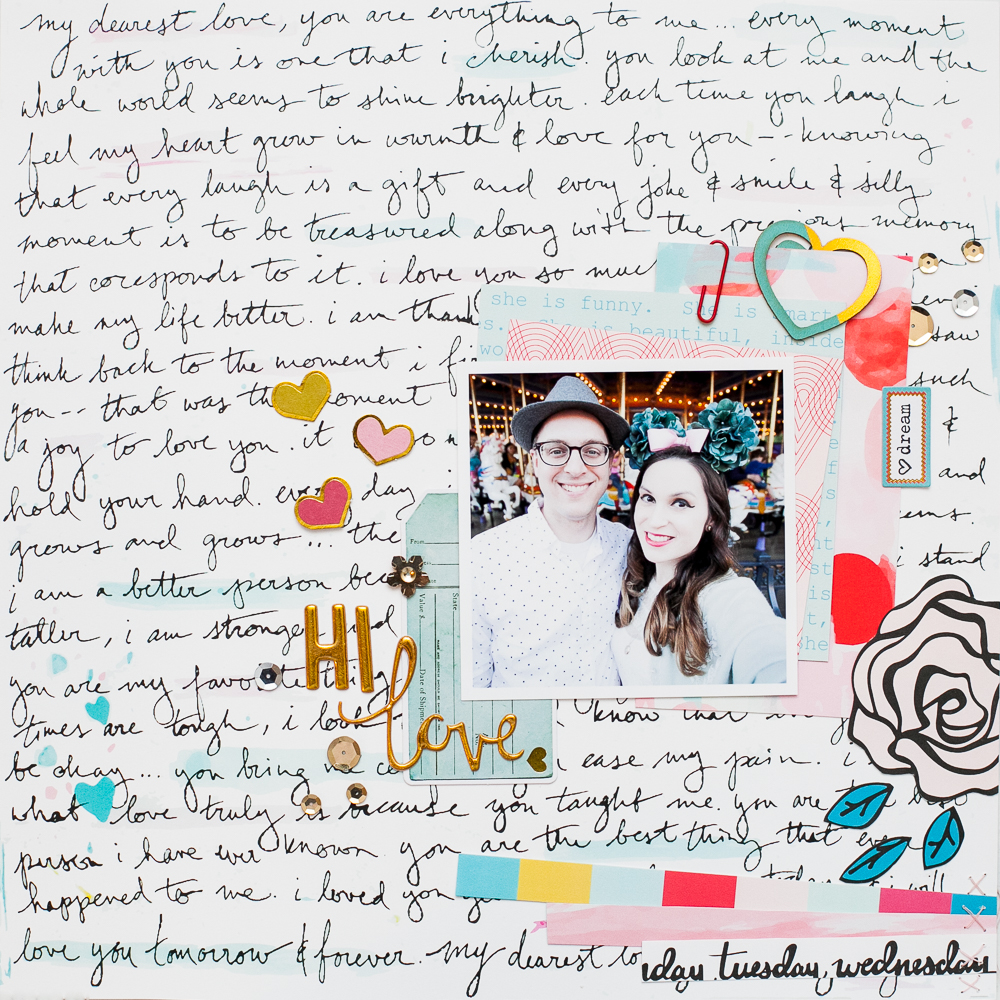 my dearest love, you are everything to me... every moment
with you is one that i cherish. you look at me and the
whole world seems to shine brighter. each time you laugh i
feel my heart grow in warmth & love for you -- knowing
that every laugh is a gift and every joke & smile & silly
moment is to be treasured along with the precious memory
that coresponds to it. i love you so much
make my life better. i am
saw
think back to the moment i
such
you -- that was the moment
&
a joy to love you. it
and
hold your hand. every day i
grows and grows... the
i stand
i am a better person
taller, i am stronger
you are my favorite thing
times are tough, i look
know that
be okay... you bring me
ease my pain. i
what love truly is because you taught me. you are the best
person i have ever known. you are the best thing that ever
happened to me. i loved you
i will
love you tomorrow & forever. my dearest lo
she is funny. She is smart
s. She is beautiful, inside
wo
dream
From
State
Value $
Date of Shipment
HI
love
day, tuesday, wednesday